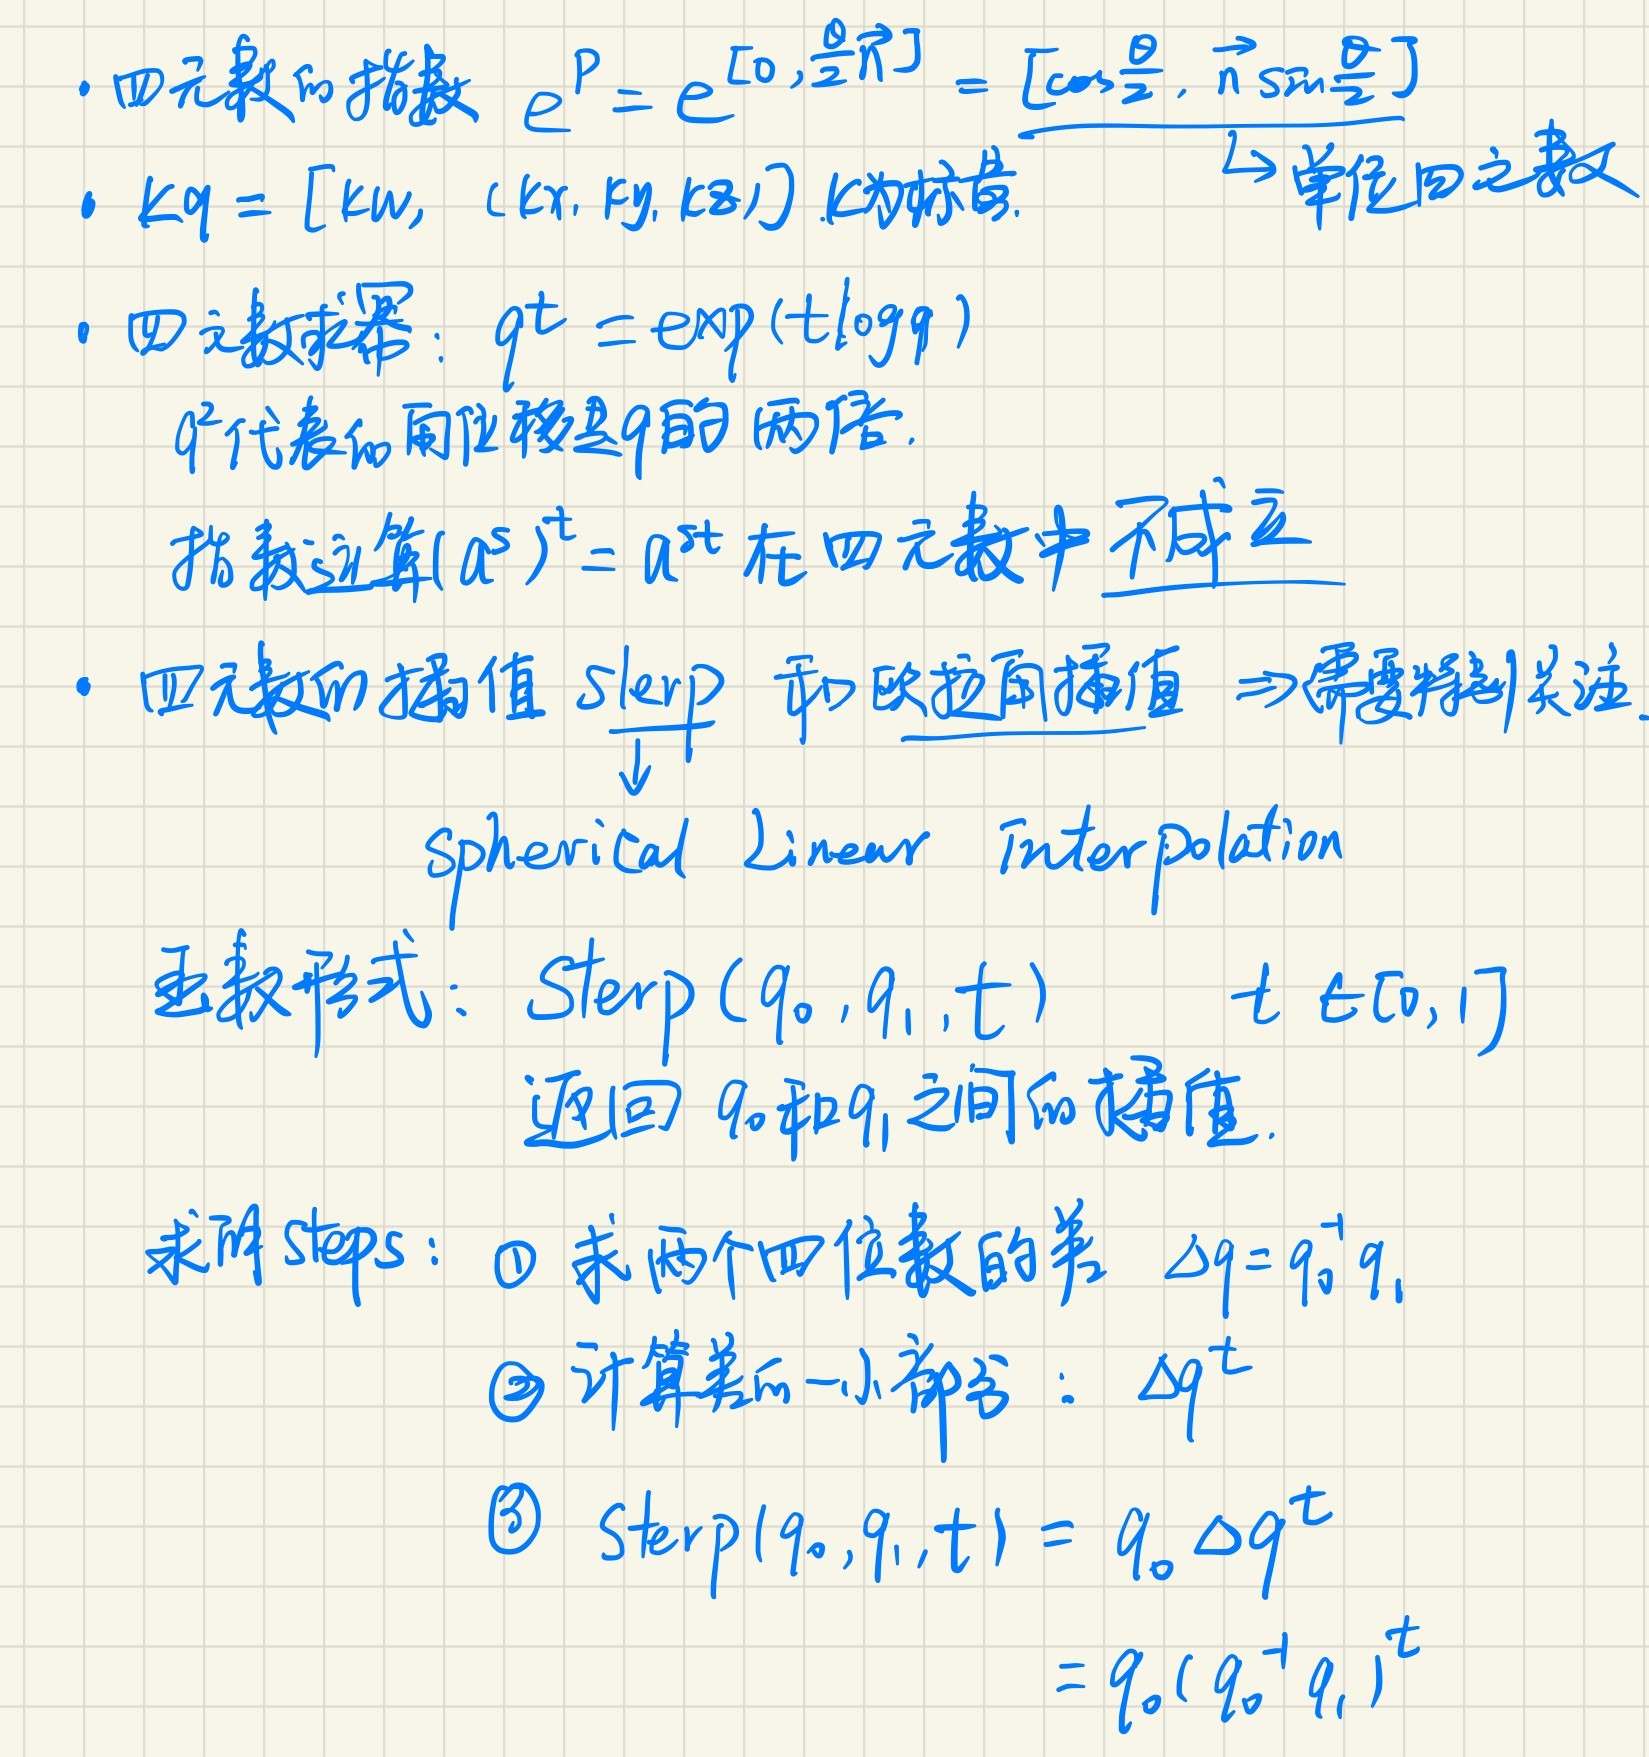 · 四元数的指数 e^P = e^[0, θ/2 n⃗] = [cos θ/2, n⃗ sin θ/2]
↳ 单位四元数
· kq = [kw, (kx, ky, kz)] k为标量.
· 四元数求幂: q^t = exp(t log q)
q²代表的角位移是q的两倍.
指数运算(a^s)^t = a^st 在四元数中不成立
· 四元数的插值 slerp 和欧拉角插值 ⇒需要特别关注.
↓
Spherical Linear Interpolation
函数形式: Slerp(q₀, q₁, t) t ∈ [0, 1]
返回 q₀和q₁之间的插值.
求解 Steps: ① 求两个四位数的差 Δq = q₀⁻¹ q₁
② 计算差的一小部分: Δq^t
③ Slerp(q₀, q₁, t) = q₀ Δq^t
= q₀(q₀⁻¹ q₁)^t